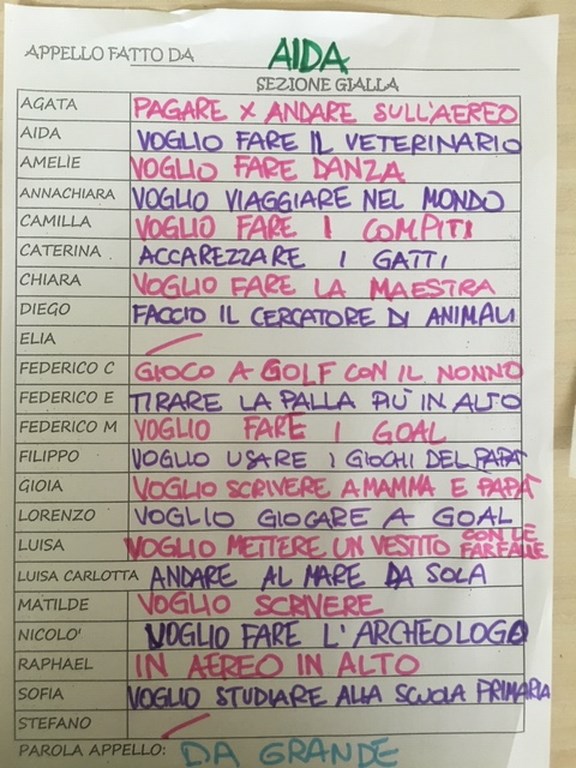 APPELLO FATTO DA AIDA
SEZIONE GIALLA
AGATA PAGARE X ANDARE SULL'AEREO
AIDA VOGLIO FARE IL VETERINARIO
AMELIE VOGLIO FARE DANZA
ANNACHIARA VOGLIO VIAGGIARE NEL MONDO
CAMILLA VOGLIO FARE I COMPITI
CATERINA ACCAREZZARE I GATTI
CHIARA VOGLIO FARE LA MAESTRA
DIEGO FACCIO IL CERCATORE DI ANIMALI
ELIA
FEDERICO C GIOCO A GOLF CON IL NONNO
FEDERICO E TIRARE LA PALLA PIÙ IN ALTO
FEDERICO M VOGLIO FARE I GOAL
FILIPPO VOGLIO USARE I GIOCHI DEL PAPÀ
GIOIA VOGLIO SCRIVERE A MAMMA E PAPÀ
LORENZO VOGLIO GIOCARE A GOAL
LUISA VOGLIO METTERE UN VESTITO CON LE FARFALLE
LUISA CARLOTTA ANDARE AL MARE DA SOLA
MATILDE VOGLIO SCRIVERE
NICOLO' VOGLIO FARE L'ARCHEOLOGO
RAPHAEL IN AEREO IN ALTO
SOFIA VOGLIO STUDIARE ALLA SCUOLA PRIMARIA
STEFANO
PAROLA APPELLO: DA GRANDE